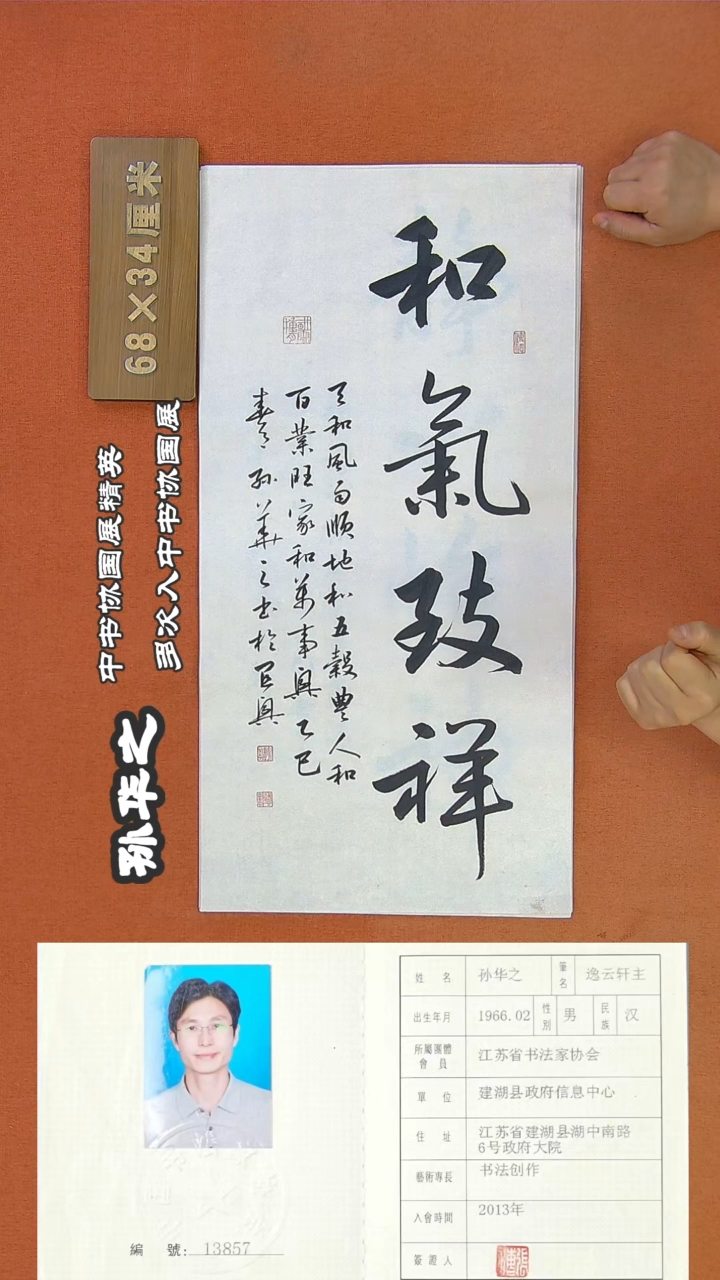 68×34厘米
中书协国展精英
多次入中书协国展
孙华之
和氣致祥
天和風雨順地和五穀豐人和
百業旺家和萬事興乙巳
春月孫華之書於
姓名 孙华之 筆名 逸云轩主
出生年月 1966.02 性別 男 民族 汉
所屬團體會員 江苏省书法家协会
單位 建湖县政府信息中心
住址 江苏省建湖县湖中南路
6号政府大院
藝術專長 书法创作
入會時間 2013年
簽證人
編號:13857